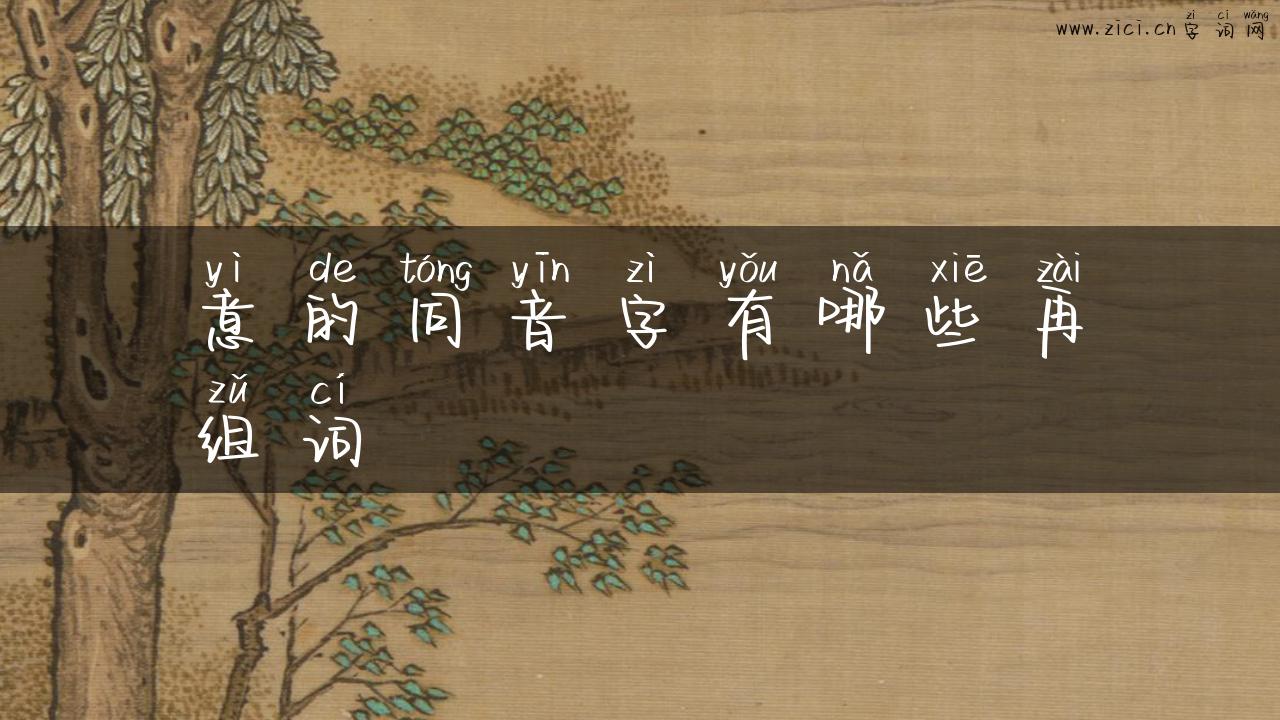 zì cí wǎng
www.zici.cn 字词网
yì de tóng yīn zì yǒu nǎ xiē zài
意的同音字有哪些再
zǔ cí
组词